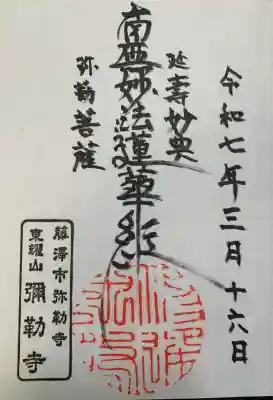 令和七年三月十六日
延壽妙典
南無妙法蓮華経
弥勒菩薩
藤澤市弥勒寺
東耀山
彌勒寺